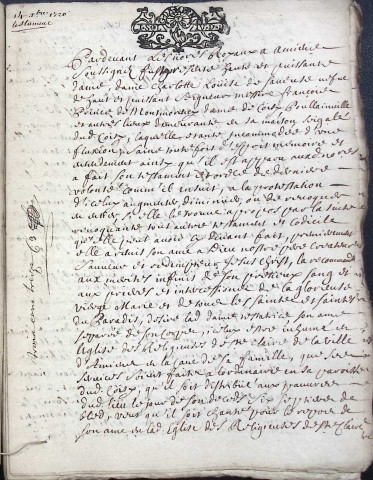 14 8bre 1720
testament
Pardevant Les no.res Royaux a Amiens
Soussignez fut presente haute et puissante
dame, dame Charlotte Louise de Saveuse vefve
de haut et puissant Seigneur messire françois
Prince de Montmorency dame de Coisy Bullainville
et autres lieux demeurante en sa maison Scigale
dud Coisy, laquelle estante incommodée d'une
fluxion, Saine toute fois d'Esprit memoire et
entendement ainsy qu'il est apparu auxd no.res
a fait son testament et ordce de derniere
volonté comme il ensuit, a la protestation
d'iceluy augmenter, diminuer, ou de revoquer
en entier si elle le trouve a propos par la suite
revoquante tout autre testament et codicile
qu'elle peut avoir cy devant fait, premierement
elle a redit son ame a Dieu nostre pere Createur
Sauveur et redempteur Jesus Christ, la recommande
aux merites infinis de son pretieux sang et
aux prieres et intercession de la glorieuse
vierge Marie et de tous les saints et saintes
du Paradis, desire lad dame testatrice son ame
separée de son corps, iceluy estre inhumé en
l'Eglise des Religieuses de Ste Claire de la ville
d'Amiens en la cave de sa famille, que ses
services soient faits a l'ordinaire en sa paroisse
dud Coisy, qu'il soit distribué aux pauvres
dud lieu le jour de son deceds six septiers de
bled, veut qu'il soit chanté pour le repos de
son ame en lad Eglise des Religieuses de Ste Claire